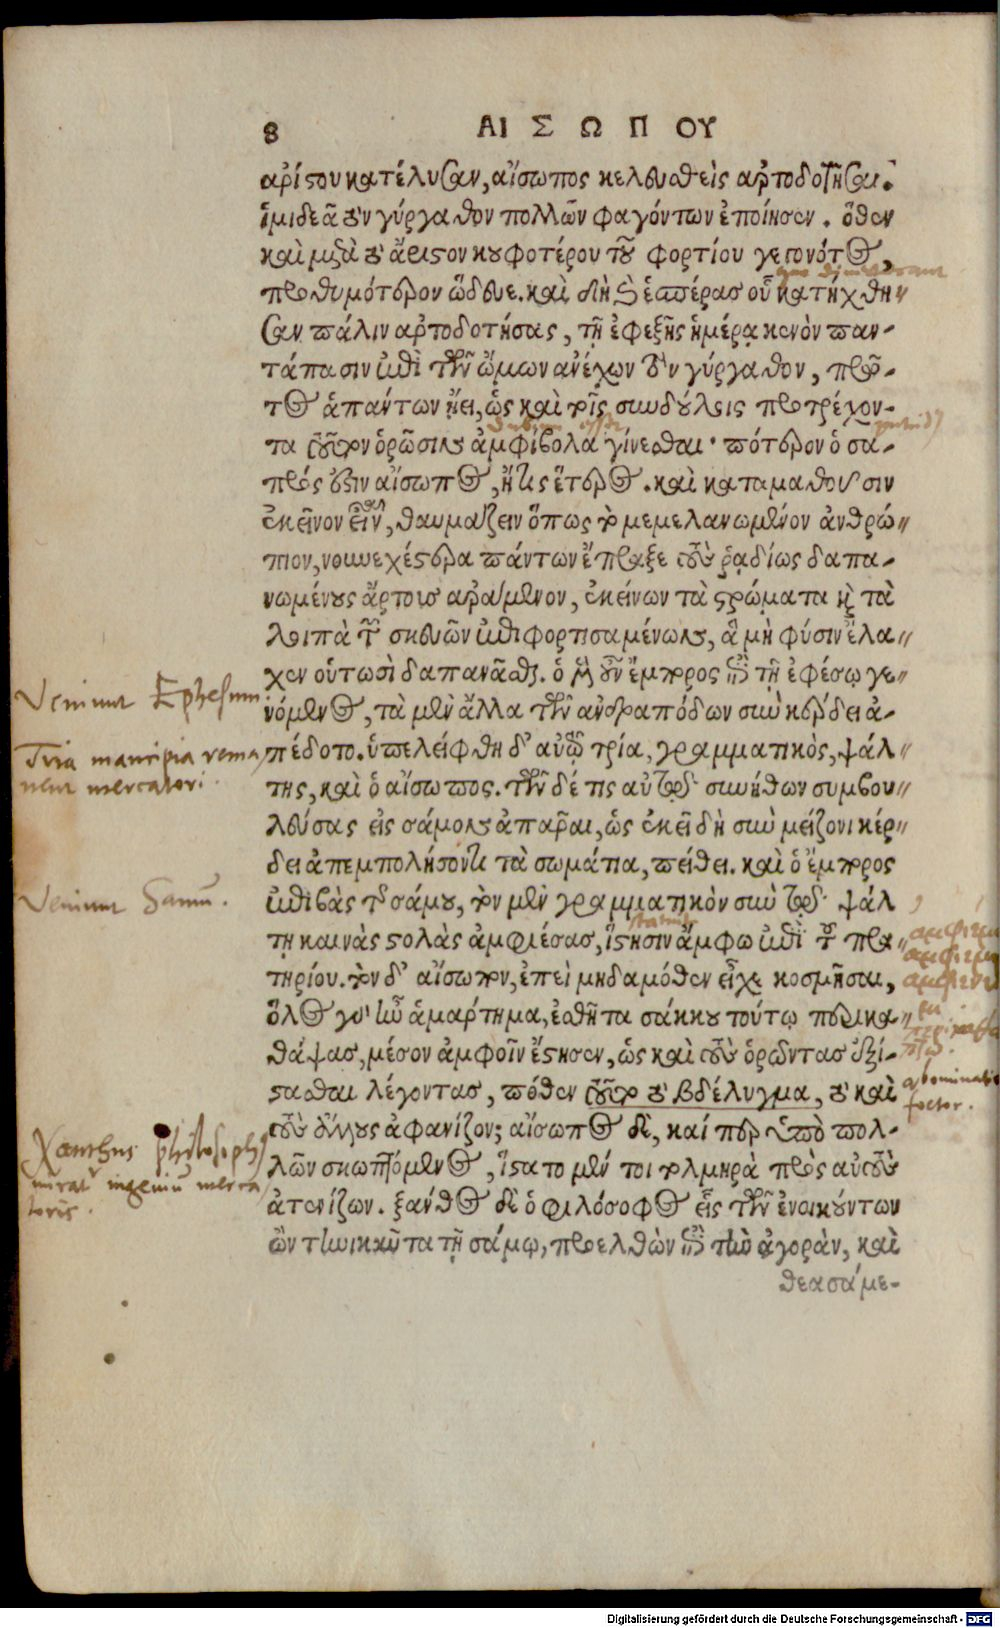 8
ΑΙΣΩΠΟΥ
αρίστου κατέλυσαν, αἴσωπος κελευσθεὶς αρτοδοτῆσαι.
ἡμιδεᾶ τὸν γύργαθον πολλῶν φαγόντων ἐποίησεν. ὅθεν
καὶ μετὰ τὸ ἄριστον κουφοτέρου τοῦ φορτίου γεγονότος,
προθυμότερον ὥδευε. καὶ δὴ καὶ ἑσπέρας οὗ κατήχθη-
σαν πάλιν αρτοδοτήσας, τῇ ἐφεξῆς ἡμέρᾳ κενὸν παν-
τάπασιν ἐπὶ τῶν ὤμων ανέχων τὸν γύργαθον, πρῶ-
τος ἁπάντων ᾔει, ὡς καὶ τοῖς συνδούλοις προτρέχον-
τα τοῦτον ὁρῶσιν ἀμφίβολα γίνεσθαι· πότερον ὁ σα-
πρός ἐστιν αἴσωπος, ἤ τις ἕτερος. καὶ καταμαθοῦσιν
ἐκεῖνον εἶναι, θαυμάζειν ὅπως τὸ μεμελανωμένον ἀνθρώ-
πιον, νουνεχέστερα πάντων ἔπραξε τοὺς ῥαδίως δαπα-
νωμένους ἄρτους αράμενον, ἐκείνων τὰ στρώματα καὶ τὰ
λοιπὰ τῶν σκευῶν ἐπιφορτισαμένων, ἃ μὴ φύσιν ἔλα-
χεν οὑτωσὶ δαπανᾶσθαι. ὁ μὲν οὖν ἔμπορος ἐν τῇ ἐφέσῳ γε-
νόμενος, τὰ μὲν ἄλλα τῶν ανδραπόδων σὺν κέρδει ἀ-
πέδοτο. ὑπελείφθη δ' αὐτῷ τρία, γραμματικὸς, ψάλ-
της, καὶ ὁ αἴσωπος. τῶν δέ τις αὐτοῦ συνήθων συμβου-
λεύσας εἰς σάμον ἀπᾶραι, ὡς ἐκεῖ δὴ σὺν μείζονι κέρ-
δει ἀπεμπολήσοντι τὰ σωμάτια, πείθει. καὶ ὁ ἔμπορος
ἐπιβὰς τῆς σάμου, τὸν μὲν γραμματικὸν σὺν τῷ ψάλ
τῃ καινὰς στολὰς ἀμφιέσας, ἵστησιν ἄμφω ἐπὶ τοῦ πρα-
τηρίου. τὸν δ' αἴσωπον, ἐπεὶ μηδαμόθεν εἶχε κοσμῆσαι,
ὅλος γὰρ ἦν ἁμάρτημα, ἐσθῆτα σάκκου τούτῳ περικα-
θάψας, μέσον ἀμφοῖν ἔστησεν, ὡς καὶ τοὺς ὁρῶντας ἐξί-
στασθαι λέγοντας, πόθεν τοῦτο τὸ βδέλυγμα, τὸ καὶ
τοὺς ἄλλους ἀφανίζον; αἴσωπος δὲ, καί περ ὑπὸ πολ-
λῶν σκωπτόμενος, ἵστατο μέν τοι τολμηρὰ πρὸς αὐτοὺς
ἀτενίζων. ξανθὸς δὲ ὁ φιλόσοφος εἷς τῶν ἐνοικούντων
ὢν τηνικαῦτα τῇ σάμῳ, προελθὼν εἰς τὴν ἀγορὰν, καὶ
θεασάμε-
Veniunt Ephesum
Tria mancipia rema
nent mercatori.
Veniunt Samū.
Xanthus philosoph
mirat ingeniū merca
toris.
abominatio
foetor.
Digitalisierung gefördert durch die Deutsche Forschungsgemeinschaft - DFG